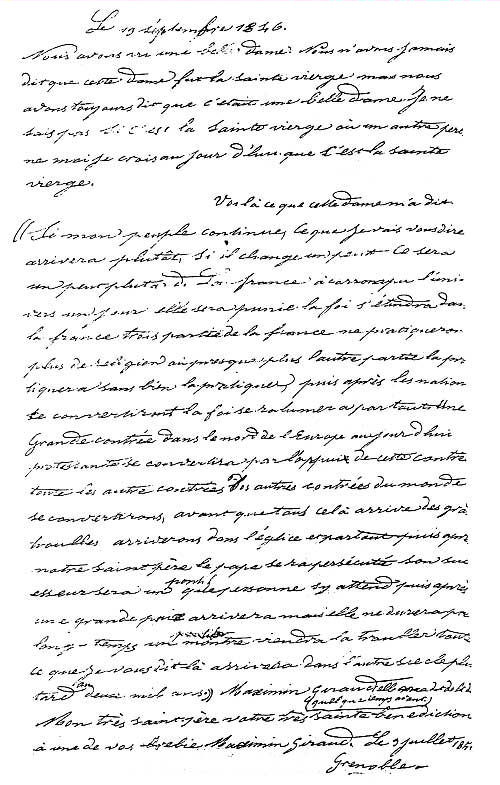 Le 19 séptembre 1846.
Nous avons vu une belle dame Nous n'avons jamais
dit que cette dame fut la sainte vierge mas nous
avons toujours dit que c'était une belle dame Je ne
sais pas si c'est la sainte vierge ou un autre perso
ne moi je crois au jour d'hui que c'est la sainte
vierge.
Voilà ce que cette dame m'a dit
((Si mon peuple continue, ce que je vais vous dire
arrivera plutôt, si il change un peut ce sera
un peu plutard. La france à corrompu l'uni
vers un jour elle sera punie la foi s'éteindra dans
la france trois partie de la france ne pratiqueron
plus de religion ou presque plus l'autre partie la pra
tiquera sans bien la pratiquer, puis après les nation
se convertiront la foi se ralumera partoute Une
grande contrée dans le nord de l'Europe aujourd'hui
protestante se convertira par l'appuix de cette contre
toute les autre contrées du monde
se convertirons, avant que tous celà arrive des gra
troubles arriverons dans l'église et partout puis apres
notre saint père le pape sera persécuté son suc
esseur sera un ponti que personne sy attend puis après
une grande paix arrivera mais elle ne durera pas
long-temps un monstre viendra la troubler tout
ce que je vous dit là arrivera dans l'autre siecle plu
tard deux mil ans.)) Maximin Giraud elle ma dit de le dire
(quelque temps avant)
Mon très saint père votre très sainte bénédiction
à une de vos brebie Maximin Giraud. Le 3 juillet 1851
Grenoble